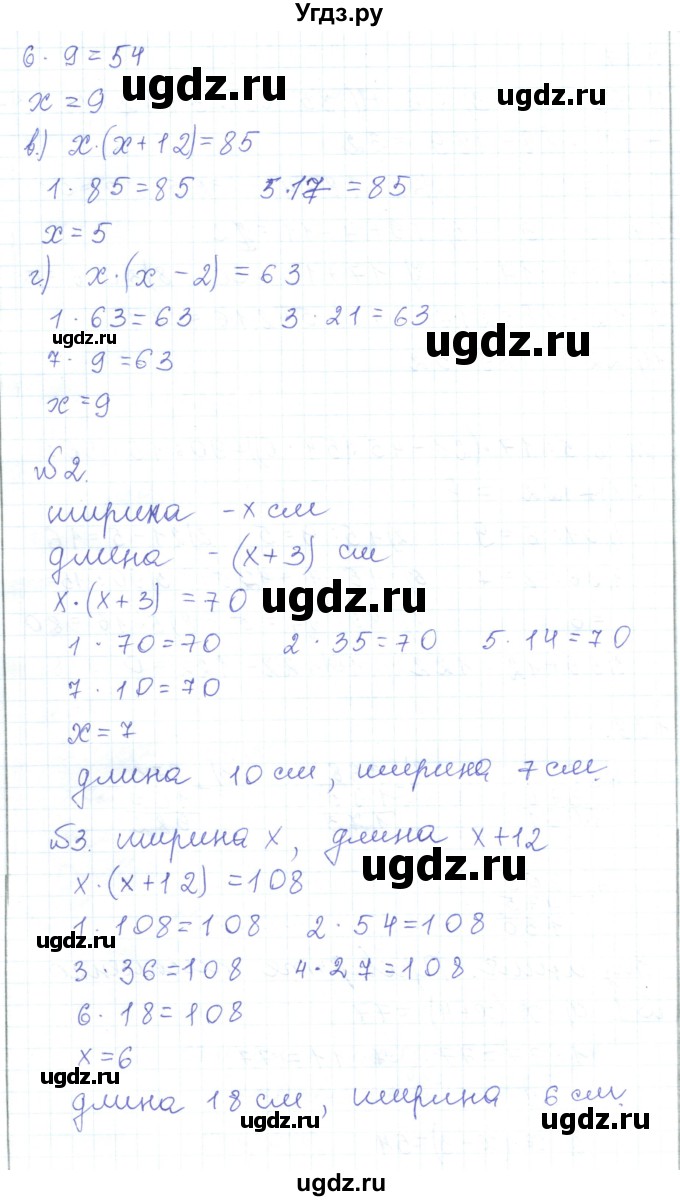 Угдз.ру
6 · 9 = 54
x = 9
ugdz.ru ugdz.ru
в.) x·(x+12)=85
1 · 85 = 85 5·17 = 85
x = 5
г.) x·(x - 2) = 63
1 · 63 = 63 3 · 21 = 63
ugdz.ru ugdz.ru
7 · 9 = 63
x = 9
№2.
ширина - x см
длина - (x+3) см
x·(x+3) = 70
ugdz.ru ugdz.ru
1 · 70 = 70 2 · 35 = 70 5 · 14 = 70
7 · 10 = 70
x = 7
длина 10 см, ширина 7 см.
№3. ширина x, длина x+12
x·(x+12) = 108
ugdz.ru
1 · 108 = 108 2 · 54 = 108
ugdz.ru
3 · 36 = 108 4 · 27 = 108
6 · 18 = 108
x = 6
ugdz.ru
длина 18 см, ширина 6 см.
ugdz.ru
ugdz.ru
ugdz.ru